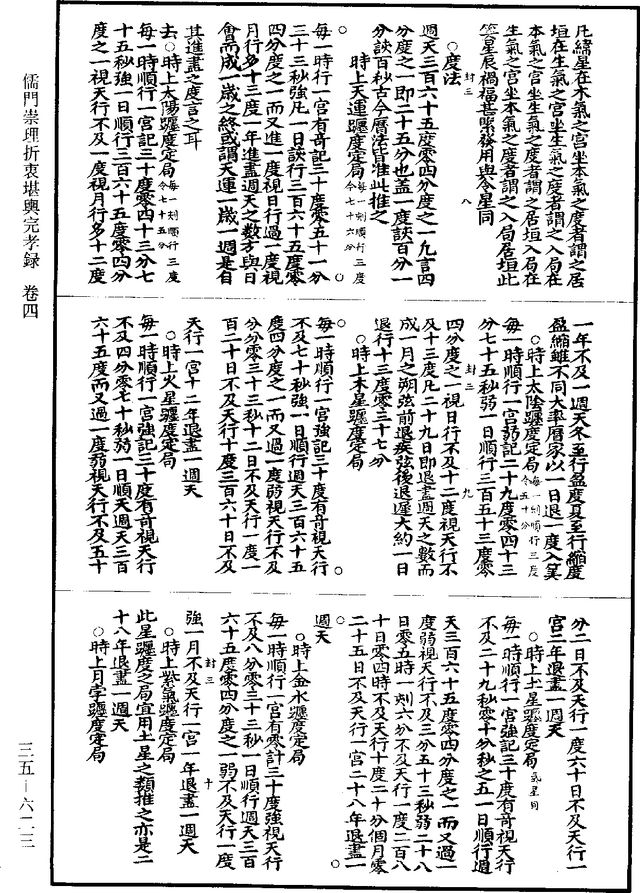 凡緯星在木氣之宮坐本氣之度者謂之居
垣在生氣之宮坐生氣之度者謂之入局在
本氣之宮坐生氣之度者謂之居垣入局在
生氣之宮坐本氣之度者謂之入局居垣此
等星辰禍福甚緊發用與令星同
封三 八
○度法
週天三百六十五度零四分度之一凡言四
分度之一即二十五分也蓋一度該百分一
分該百秒古今曆法皆准此推之
時上天運躔度定局 每一刻順行三度令七十六分
○
每一時行一宮有奇記三十度零五十一分
三十三秒強凡一日該行三百六十五度零
四分度之一而又進一度視日行過一度視
月行多十三度一年進盡週天之數方與日
會而成一歲之終或謂天運一歲一週是自
其進盡之度言之耳
去○時上太陽躔度定局 每一刻順行三度令七十五分
每一時順行一宮記三十度零四十三分七
十五秒強一日順行三百六十五度零四分
度之一視天行不及一度視月行多十二度
一年不及一週天冬至行盈度夏至行縮度
盈縮雖不同大率曆家以一日退一度入筭
○時上太陰躔度定局 每一刻順行三度令五十分
每一時順行一宮弱記二十九度零四十三
分七十五秒弱一日順行三百五十三度零
封三 九
四分度之一視日行不及十二度視天行不
及十三度凡二十九日即退盡週天之數而
成一月之朔弦前退疾弦後退遲大約一日
退行十三度零三十七分
○時上木星躔度定局
○
每一時順行一宮強記三十度有奇視天行
不及七十秒強一日順行週天三百六十五
度四分度之一而又過一度弱視天行不及
分分零三十三秒十二日不及天行一度一
百二十日不及天行十度三百六十日不及
天行一宮十二年退盡一週天
○時上火星躔度定局
每一時順行一宮強記三十度有奇視天行
不及四分零七十秒弱一日順天週天三百
六十五度而又過一度弱視天行不及五十
分二日不及天行一度六十日不及天行一
宮二年退盡一週天
○時上土星躔度定局 炁星同
每一時順行一宮強記三十度有奇視天行
不及二十九秒零十分秒之五一日順行週
天三百六十五度零四分度之一而又過一
度弱視天行不及三分五十三秒弱二十八
日零五時一刻六分不及天行一度二百八
十日零四時不及天行十度二十分個月零
二十五日不及天行一宮二十八年退盡一
○
週天
○時上金水躔度定局
每一時順行一宮有零計三十度強視天行
不及八分零三十三秒一日順行週天三百
六十五度零四分度之一弱不及天行一度
封三 十
強一月不及天行一宮一年退盡一週天
○時上紫氣躔度定局
此星躔度之局宜用土星之類推之亦是二
十八年退盡一週天
○時上月孛躔度定局
儒門崇理折衷堪輿完孝録 卷四
三五－六二三